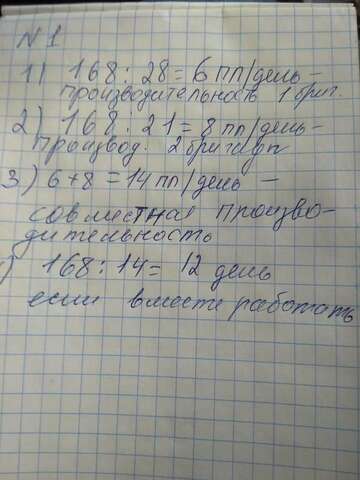 N 1
1) 168 : 28 = 6 пл/день –
производительность 1 бриг.
2) 168 : 21 = 8 пл/день –
производ. 2 бригады
3) 6 + 8 = 14 пл/день —
совместная произво-
дительность
) 168 : 14 = 12 день
если вместе работать